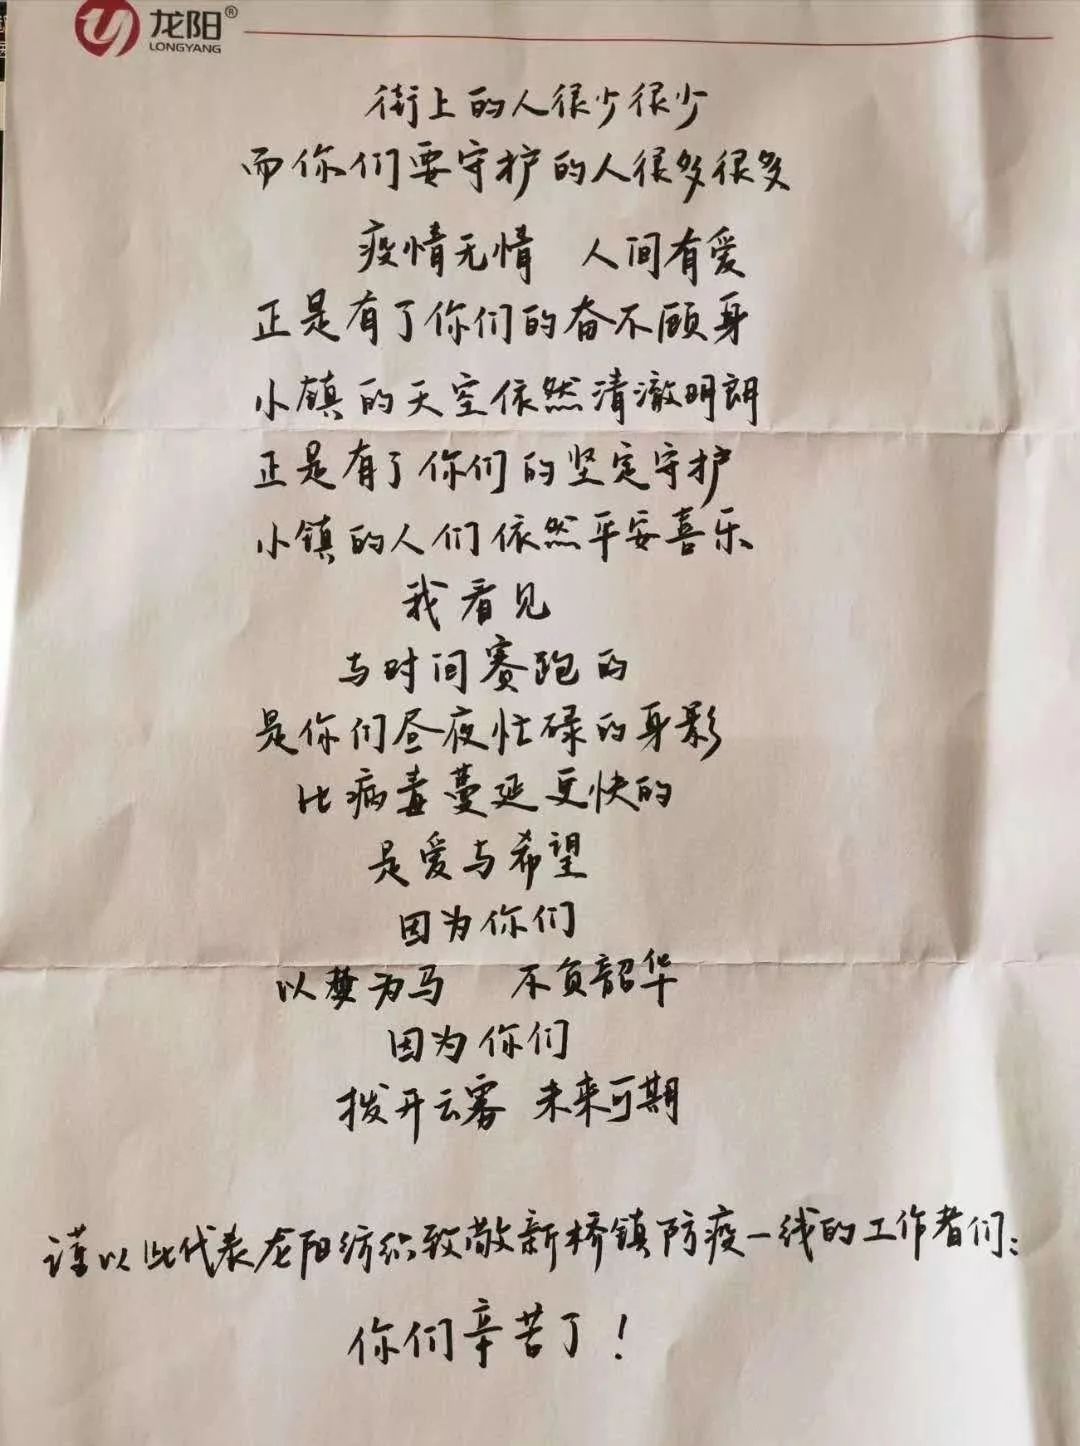 龙阳®
LONGYANG
街上的人很少很少
而你们要守护的人很多很多
疫情无情 人间有爱
正是有了你们的奋不顾身
小镇的天空依然清澈明朗
正是有了你们的坚定守护
小镇的人们依然平安喜乐
我看见
与时间赛跑的
是你们昼夜忙碌的身影
比病毒蔓延更快的
是爱与希望
因为你们
以梦为马 不负韶华
因为你们
拨开云雾 未来可期
谨以此代表龙阳纺织致敬新桥镇防疫一线的工作者们:
你们辛苦了!